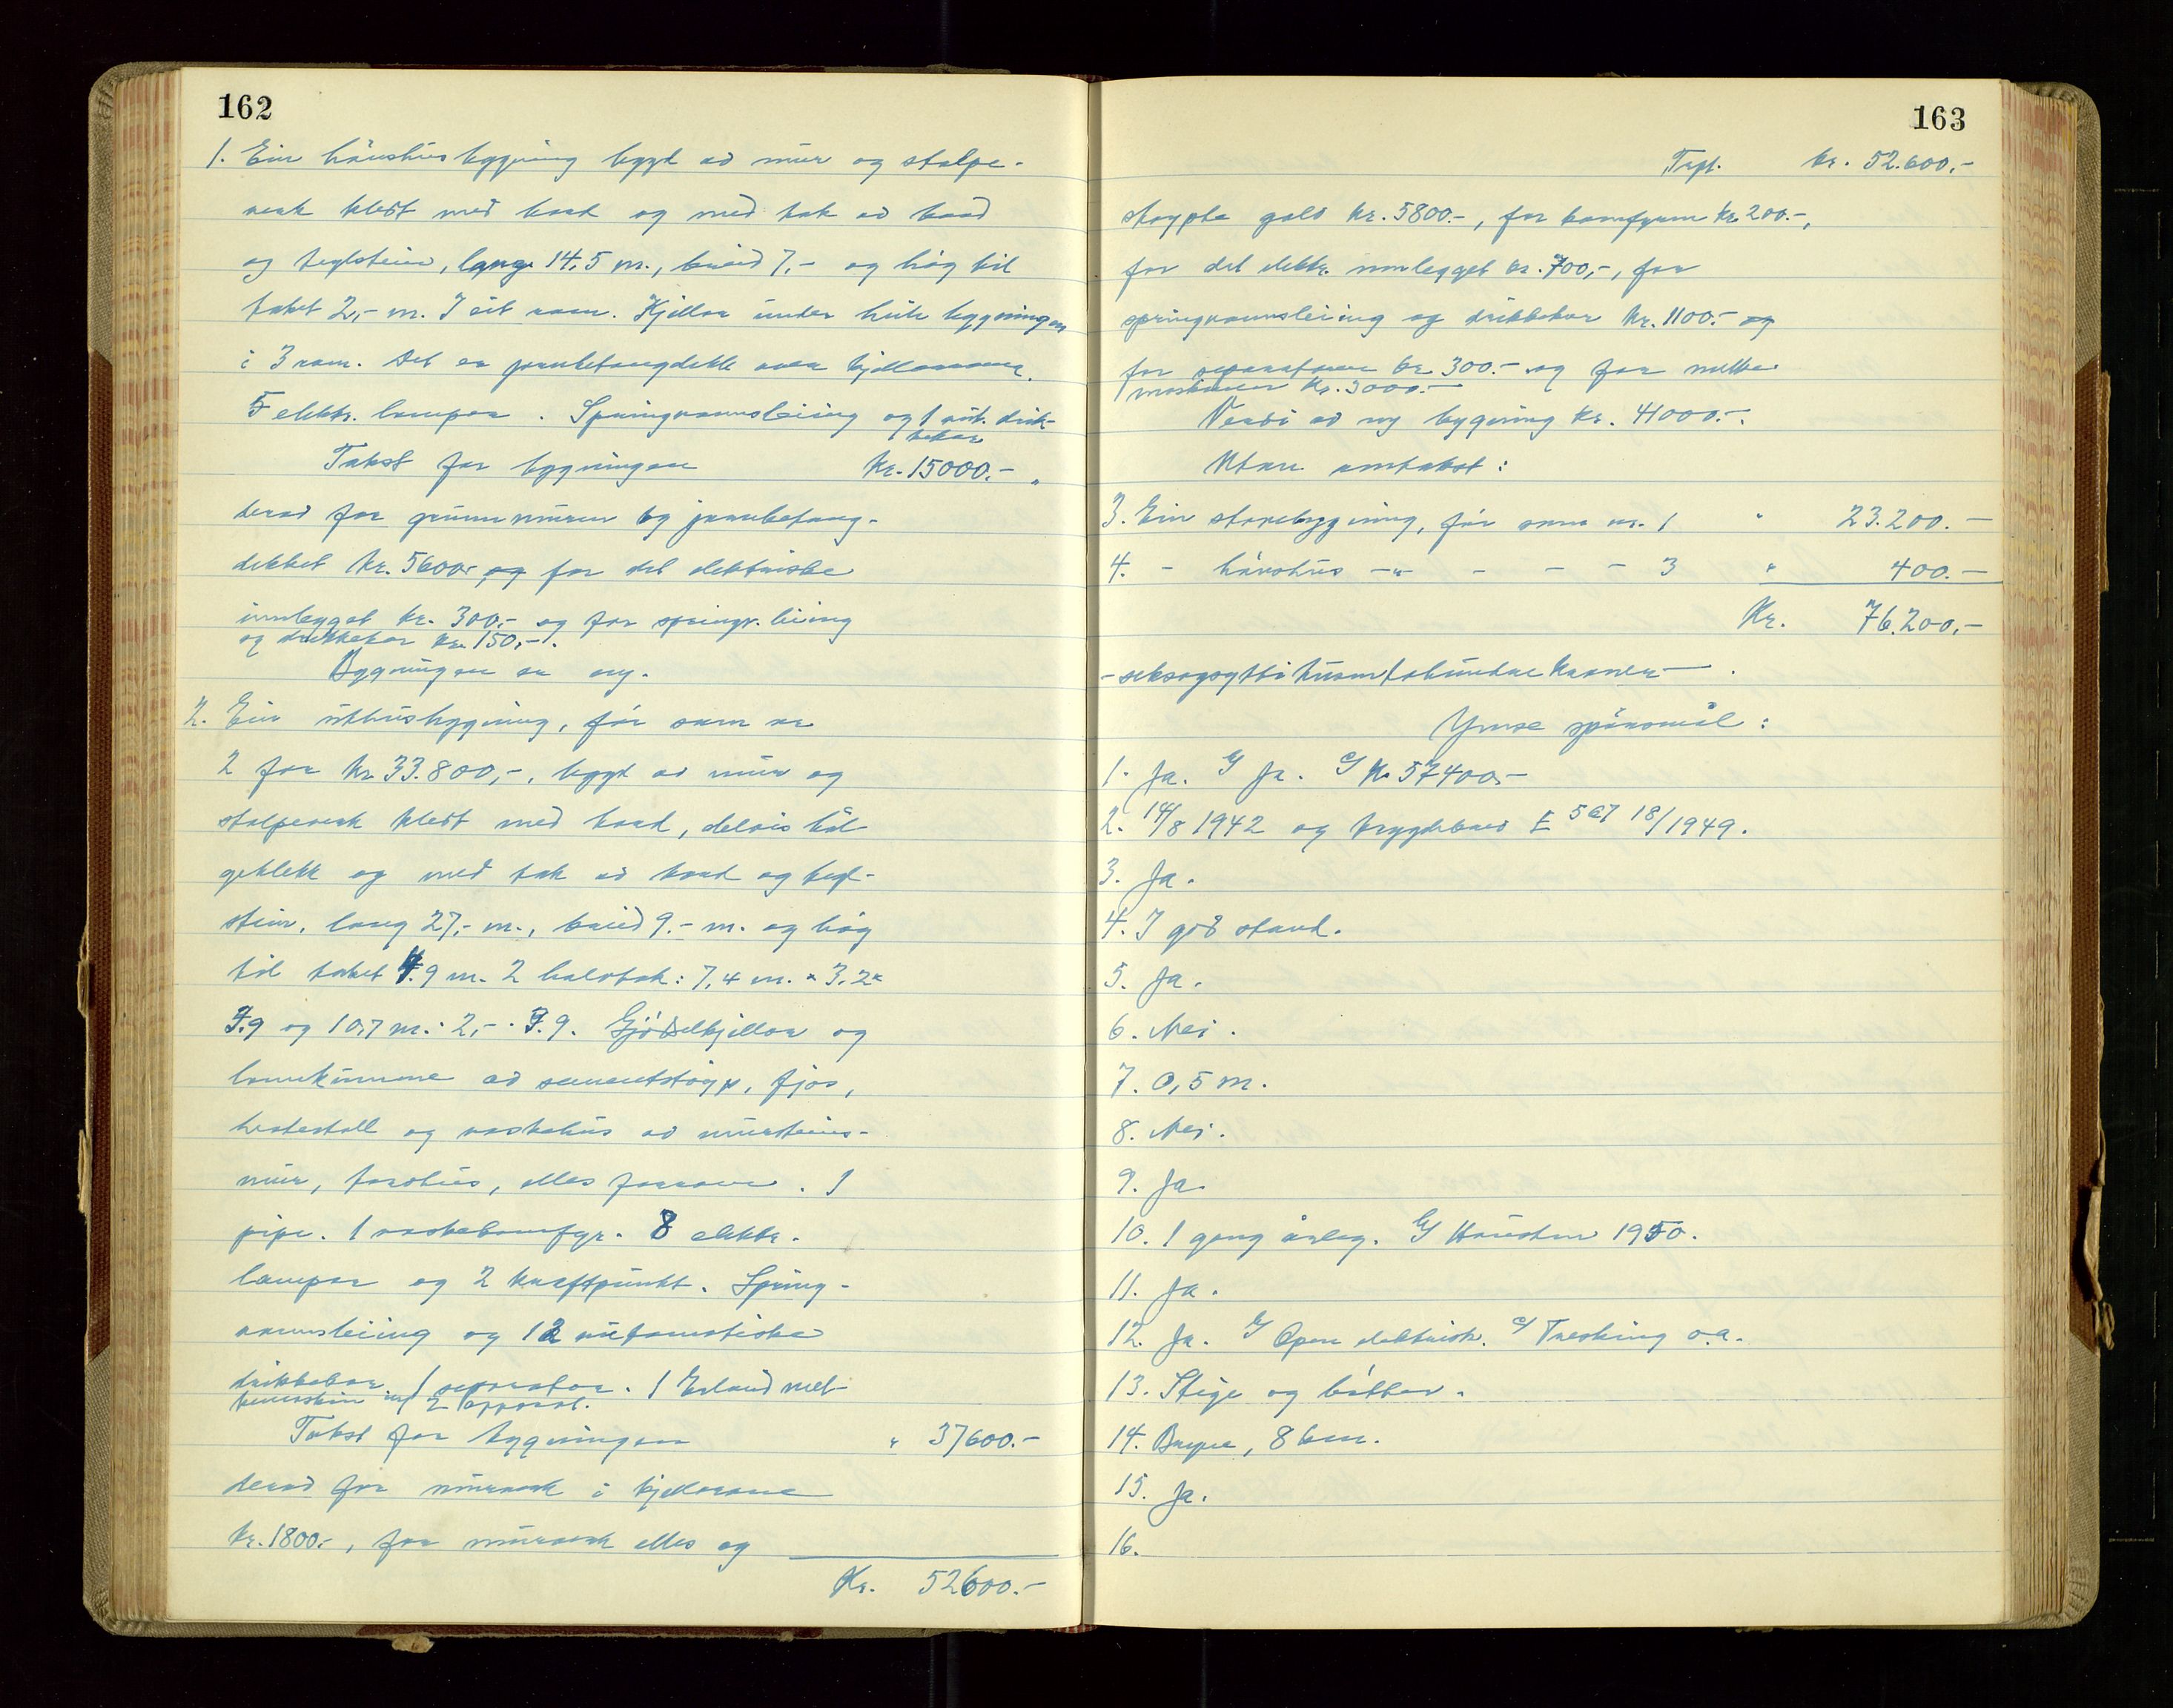 162
1. Ein hönshusbygning bygd av mur og stolpe-
verk kledt med bord og med tak av bord
og teglstein, lang 14,5 m., breid 7,- og høg til
taket 2,- m. I eit rom. Kjellar under heile bygningen
i 3 rom. Det er jarnbetongdekke over kjellarane.
5 elektr. lampor. Springvannsleiing og 1 aut. drik-
kekar
Takst for bygningen Kr. 15000.-
derav for grunnmuren og jarnbetong-
dekket Kr. 5600.- og for det elektriske
innlegget kr. 300,- og for springv. leiing
og drikkekar kr. 150,-.
Bygningen er ny.
2. Ein uthusbygning, før som nr
2 for Kr 33.800,-, bygd av mur og
stolpeverk kledt med bord, delvisböl
geblekk og med tak av bord og tegl-
stein, lang 27,- m., breid 9.- m. og høg
til taket 4.9 m. 2 halvtak: 7,4 m. × 3,2 ×
3.9 og 10,7 m. · 2,- · 3.9. Gjödselkjellar og
landkumme av sementstöyp, fjos,
hestestall og vaskehus av murteins-
mur, torvhus, elles forrom. 1
pipe. 1 vaskekomfyr. 8 elektr.
lampor og 2 kraftpunkt. Spring-
vannsleiing og 12 automatiske
drikkekar, 1 separator. 1 Erland mel-
kemaskin m/ 2 apparat.
Takst for bygningen " 37600.-
derav for murverk i kjellarane
Kr. 1800.-, for murverk elles og
Kr. 52600.-
163
Trpt. kr. 52.600,-
støypte golv kr. 5800.-, for komfyren Kr 200.-,
for det elektr. innlegget kr. 700,-, for
springvannsleiing og drikkekar Kr. 1100.- og
for separatoren kr. 300.- og for melke
maskinen kr. 3000.-
Verdi av ny bygning Kr. 41000.-.
Utan omtakst:
3. Ein stovebygning, før som nr. 1 " 23.200.-
4. - hönshus -"- - - - 3 " 400.-
Kr. 76.200,-
- seksogsytti tusentohundre kroner - .
Ymse spörsmål:
1. Ja. G Ja. G Kr 57400,-
2. 14/8 1942 og brygdebrev E 567 18/1949.
3. Ja.
4. I god stand.
5. Ja.
6. Nei.
7. 0,5 m.
8. Nei.
9. Ja
10. 1 gong årleg. G Hausten 1950.
11. Ja.
12. Ja. G Open elektrisk. G Tresking o.a.
13. Stige og bøtter.
14. Bryne, 8 km.
15. Ja.
16.